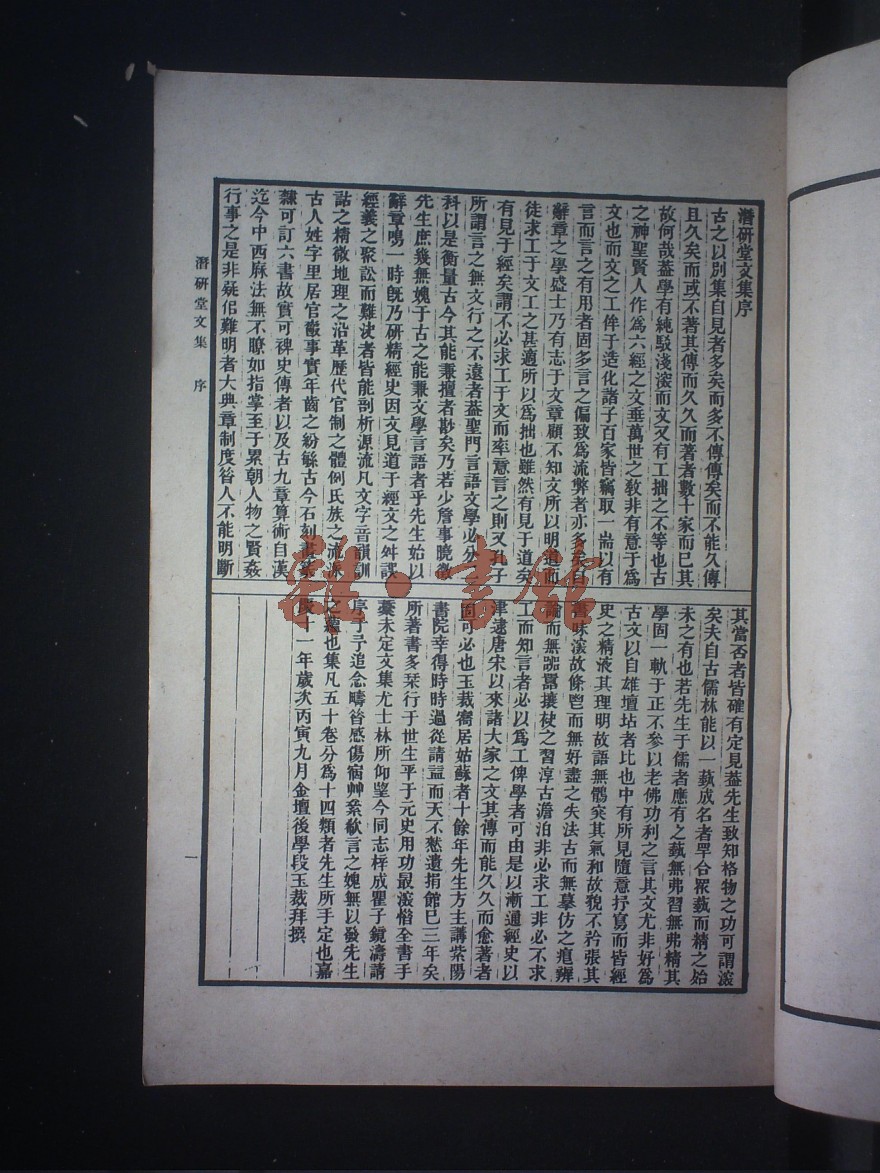 潛研堂文集序
古之以別集自見者多矣而多不傳傳矣而不能久傳
且久矣而或不著其傳而久久而著者數十家而已其
故何哉葢學有純駁淺深而文又有工拙之不等也古
之神聖賢人作爲六經之文垂萬世之敎非有意于爲
文也而文之工侔于造化諸子百家皆竊取一耑以有
言而言之有用者固多言之偏致爲流弊者亦多矣自
辭章之學盛士乃有志于文章顧不知文所以明道而
徒求工于文工之甚適所以爲拙也雖然有見于道矣
有見于經矣謂不必求工于文而率意言之則又孔子
所謂言之無文行之不遠者葢聖門言語文學必分
科以是衡量古今其能兼擅者尠矣乃若少詹事曉徵
先生庶幾無媿于古之能兼文學言語者乎先生始以
辭章鳴一時旣乃硏精經史因文見道于經文之舛誤
經義之聚訟而難決者皆能剖析源流凡文字音韻訓
詁之精微地理之沿革歷代官制之體例氏族之流派
古人姓字里居官爵事實年齒之紛繇古今石刻畫篆
隸可訂六書故實可裨史傳者以及古九章算術自漢
迄今中西厤法無不瞭如指掌至于累朝人物之賢姦
行事之是非疑佀難明者大典章制度昝人不能明斷
其當否者皆確有定見葢先生致知格物之功可謂深
矣夫自古儒林能以一蓺成名者罕合衆蓺而精之殆
未之有也若先生于儒者應有之蓺無弗習無弗精其
學固一軌于正不參以老佛功利之言其文尤非好爲
古文以自雄壇坫者比也中有所見隨意抒寫而皆經
史之精液其理明故語無鶻突其氣和故貌不矜張其
書味深故條鬯而無好盡之失法古而無摹仿之痕辨
論而無嘂囂攘袂之習淳古澹泊非必求工非必不求
工而知言者必以爲工俾學者可由是以漸通經史以
津逮唐宋以來諸大家之文其傳而能久久而愈著者
固可必也玉裁僑居姑蘇者十餘年先生方主講紫陽
書院幸得時時過從請益而天不憖遺捐館已三年矣
所著書多栞行于世生平于元史用功最深惜全書手
稾未定文集尤士林所仰望今同志梓成瞿子鏡濤請
序于予追念疇昝感傷宿艸絫欷言之媿無以發先生
之蘊也集凡五十卷分爲十四類者先生所手定也嘉
慶十一年歲次丙寅九月金壇後學段玉裁拜撰
潛研堂文集 序
一
雜·書館